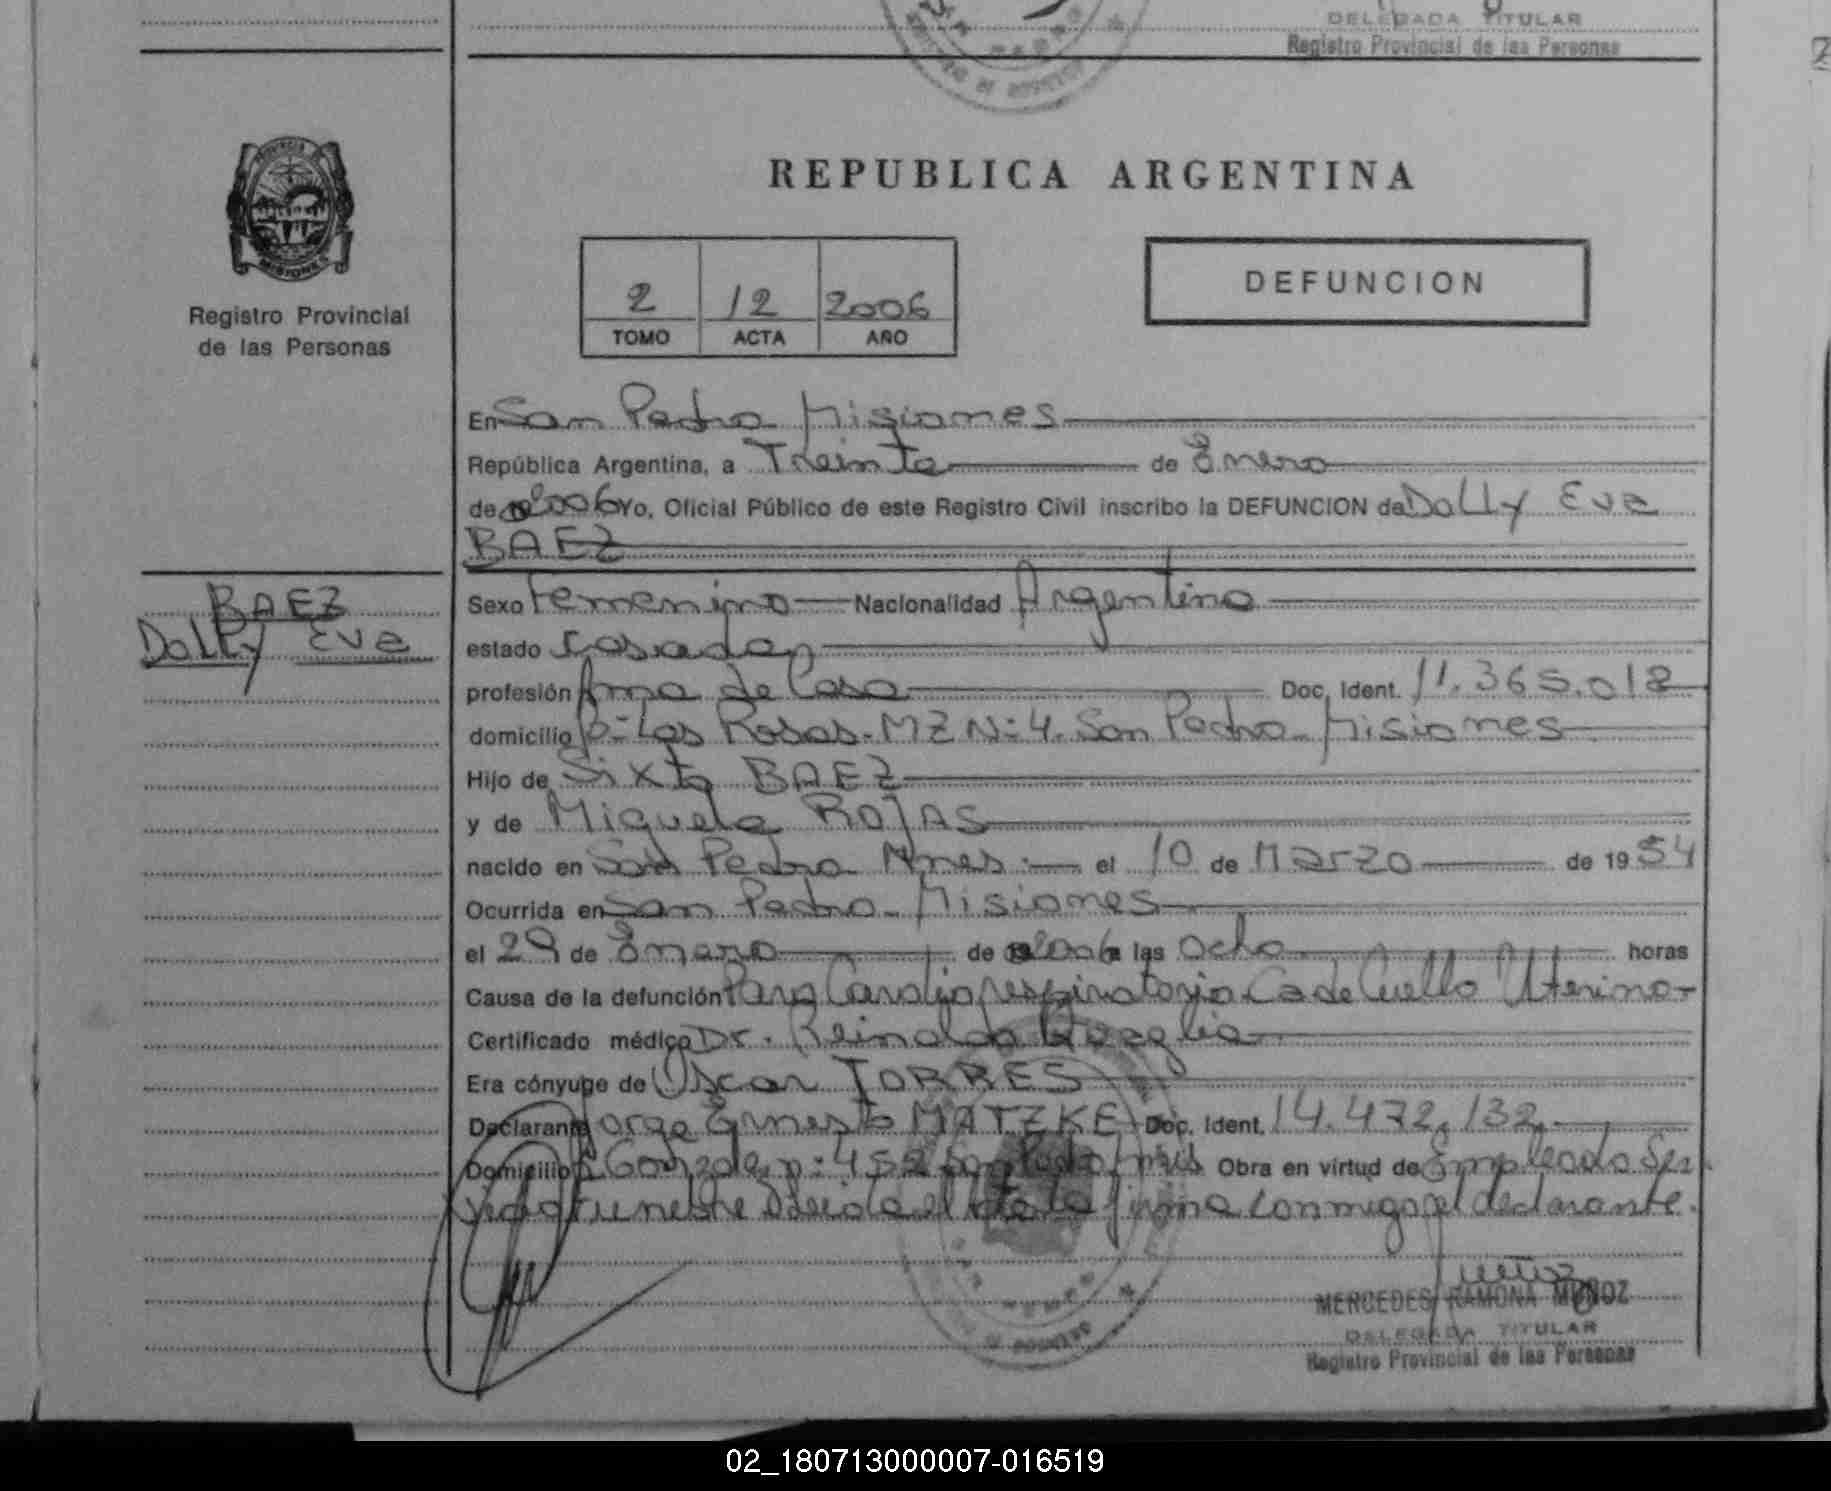 DELEGADA TITULAR
Registro Provincial de las Personas
REPUBLICA ARGENTINA
PROVINCIA DE
MISIONES
Registro Provincial
de las Personas
2 12 2006
TOMO ACTA AÑO
DEFUNCION
En San Pedro Misiones
República Argentina, a Treinta de Enero
de 2006 Yo, Oficial Público de este Registro Civil inscribo la DEFUNCION de Dolly Eva
BAEZ
BAEZ
Dolly Eva
Sexo Femenino Nacionalidad Argentina
estado casada
profesión Ama de Casa Doc. Ident. 11.365.018
domicilio B= Las Rosas-MZ N=4. San Pedro-Misiones
Hijo de Sixto BAEZ
y de Miguela ROJAS
nacido en San Pedro Mnes. el 10 de Marzo de 1954
Ocurrida en San Pedro-Misiones
el 29 de Enero de 2006 a las Ocho horas
Causa de la defunción Paro Cardiorespiratorio-Ca de Cuello Uterino-
Certificado médico Dr. Reinaldo
Era cónyuge de Oscar TORRES
Declarante Jorge Ernesto MATZKE Doc. Ident. 14.472.132
Domicilio Gonzalez n: 452 San Pedro Mnes Obra en virtud de Empleado Ser
vicio Funebre el acta la firma conmigo el declarante.
MERCEDES RAMONA MUÑOZ
DELEGADA TITULAR
Registro Provincial de las Personas
02_180713000007-016519